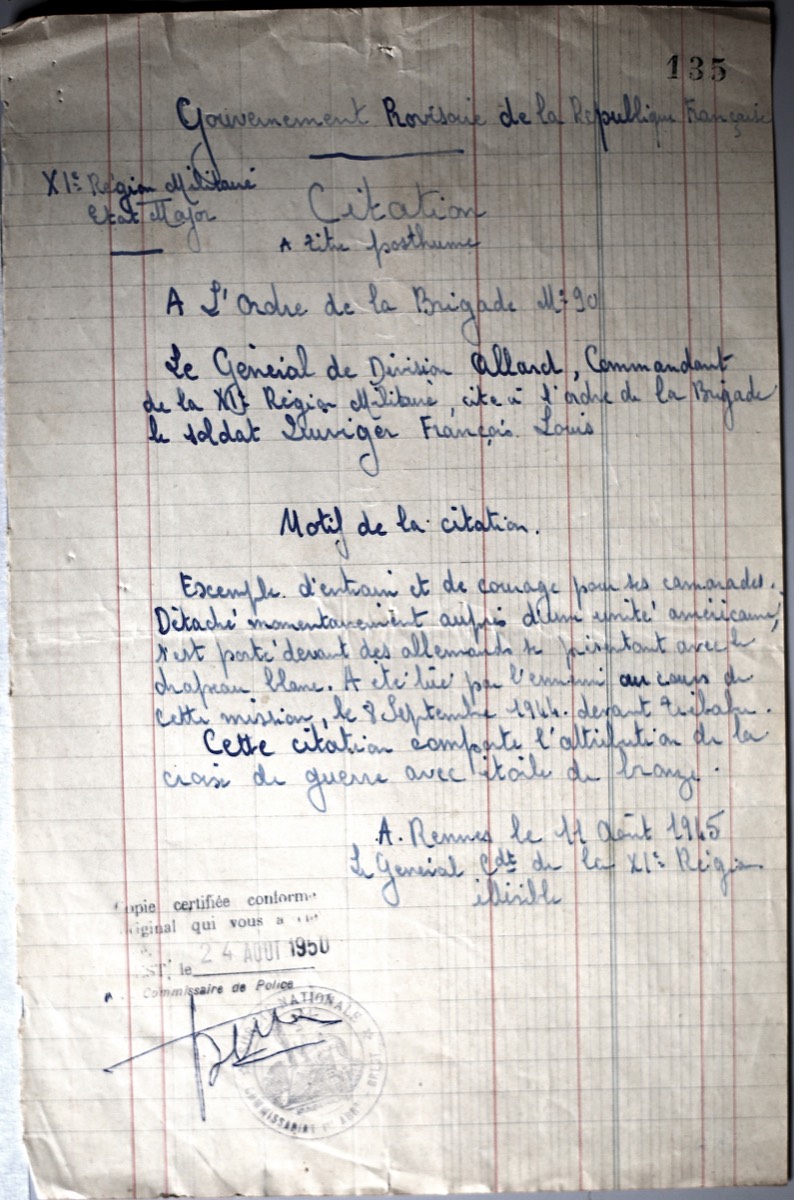 135
Gouvernement Provisoire de la République Française
XIe Région Militaire
Etat Major
Citation
A titre posthume
A L'Ordre de la Brigade No 90
Le Général de Division Allard, Commandant
de la XIe Région Militaire, cite à l'ordre de la Brigade
le soldat François Louis
Motif de la citation.
Exemple d'entrain et de courage pour ses camarades.
Détaché momentanement auprès d'une unité américaine,
s'est porté devant des allemands se présentant avec le
drapeau blanc. A été tué par l'ennemi au cours de
cette mission, le 8 Septembre 1944. devant
Cette citation comporte l'attribution de la
croix de guerre avec étoile de bronze.
A. Rennes le 11 Août 1945
Le Général Cdt de la XIe Région
illisible
opie certifiée conform
iginal qui vous a
ST, le 24 AOUT 1950
Commissaire de Police
NATIONALE
COMMISSARIAT